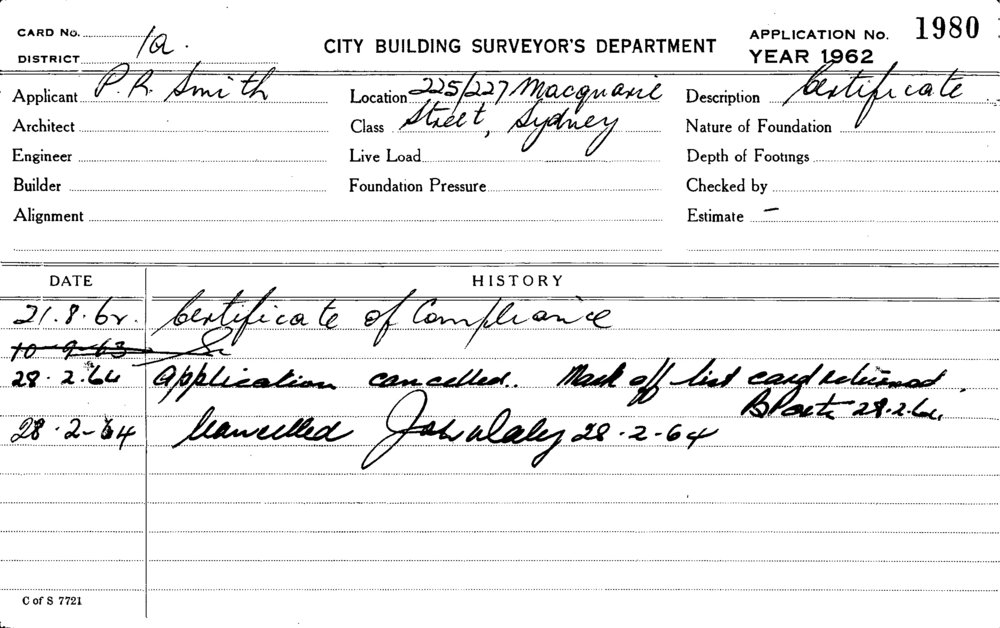 CARD No.
DISTRICT 1a.
CITY BUILDING SURVEYOR'S DEPARTMENT
APPLICATION No. 1980
YEAR 1962
Applicant P. R. Smith
Location 225/227 Macquarie
Description Certificate
Architect
Class Street, Sydney
Nature of Foundation
Engineer
Live Load
Depth of Footings
Builder
Foundation Pressure
Checked by
Alignment
Estimate –
DATE HISTORY
21.8.62. Certificate of Compliance
10-9-63
28.2.64 Application cancelled. Mark off list card returned.
28.2.64.
28.2-64 Cancelled John Daley 28.2-64
C of S 7721